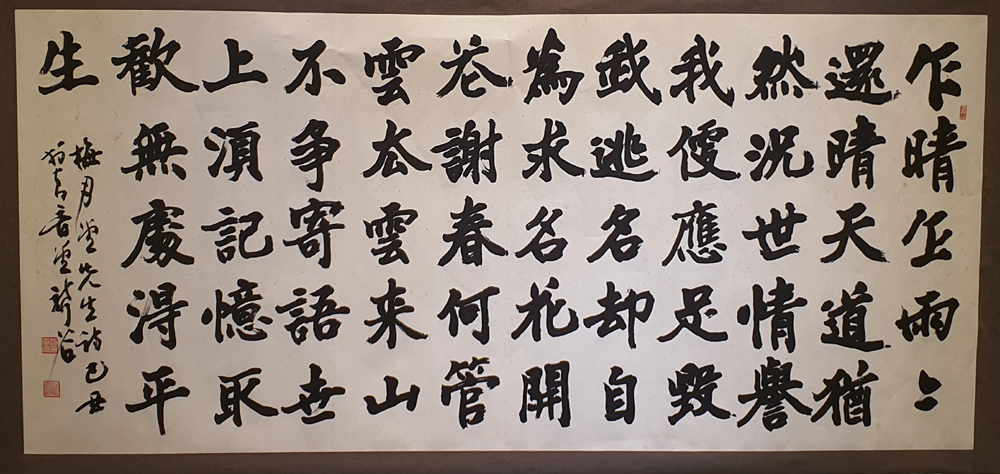 乍晴乍雨〻
還晴天道猶
然況世情譽
我便應是毀
我逃名却自
為求名花開
花謝春何管
雲去雲来山
不争寄語世
上須記憶取
歡無處得平
生
梅月堂先生詩己丑